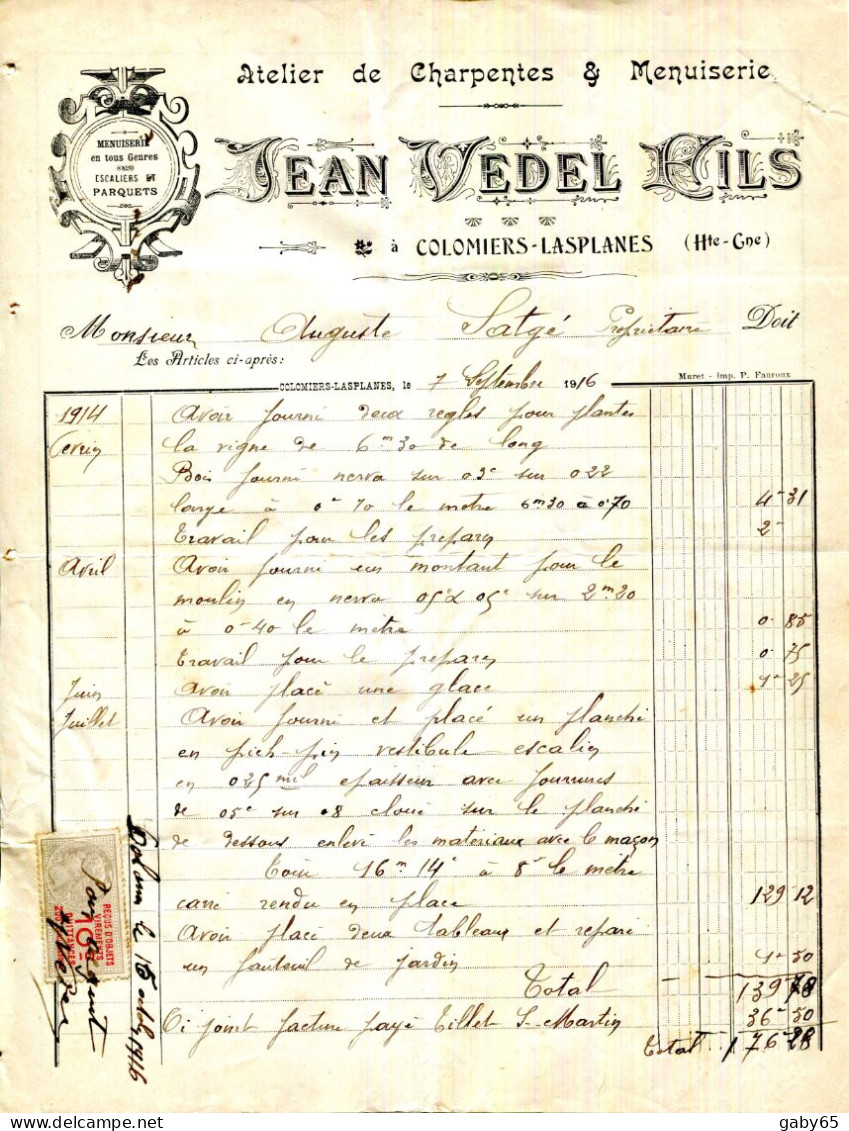 Atelier de Charpentes & Menuiserie
MENUISERIE
en tous Genres
ESCALIERS ET
PARQUETS
JEAN VEDEL FILS
à COLOMIERS-LASPLANES (Hte-Gne)
Monsieur Auguste Satgé Propriétaire Doit
Les Articles ci-après:
Muret - Imp. P. Fauroux
COLOMIERS-LASPLANES, le 7 Septembre 1916
1914 Avoir fourni deux regles pour plantes
la vigne de 6m30 de long
Bois fourni nerva sur 03c sur 022
large à 0f70 le metre 6m30 à 0f70 4-31
Travail pour les preparer 2-
Avril Avoir fourni un montant pour le
moulin en nerva 05c 05c sur 2m20
à 0-40 le mètre 0-85
Travail pour le preparer 0-75
Juin Avoir placé une glace 1-25
Juillet Avoir fourni et placé un planché
en pich-pin vestibule escalier
en 025mil epaisseur avec fourrures
de 05c sur 08 cloué sur le planché
de dessous enlevé les materiaux avec le maçon
16m 14c à 8f le mètre
carré rendu en place 129-12
Avoir placé deux tableaux et reparé
un fauteuil de jardin 1-50
Total 139-78
Ci joint facture payé Tillet St-Martin 36-50
Total 176-28
REÇUS D'OBJETS
VIREMENTS
10c
QUITTANCES
Pour acquit
le 1916
gaby65